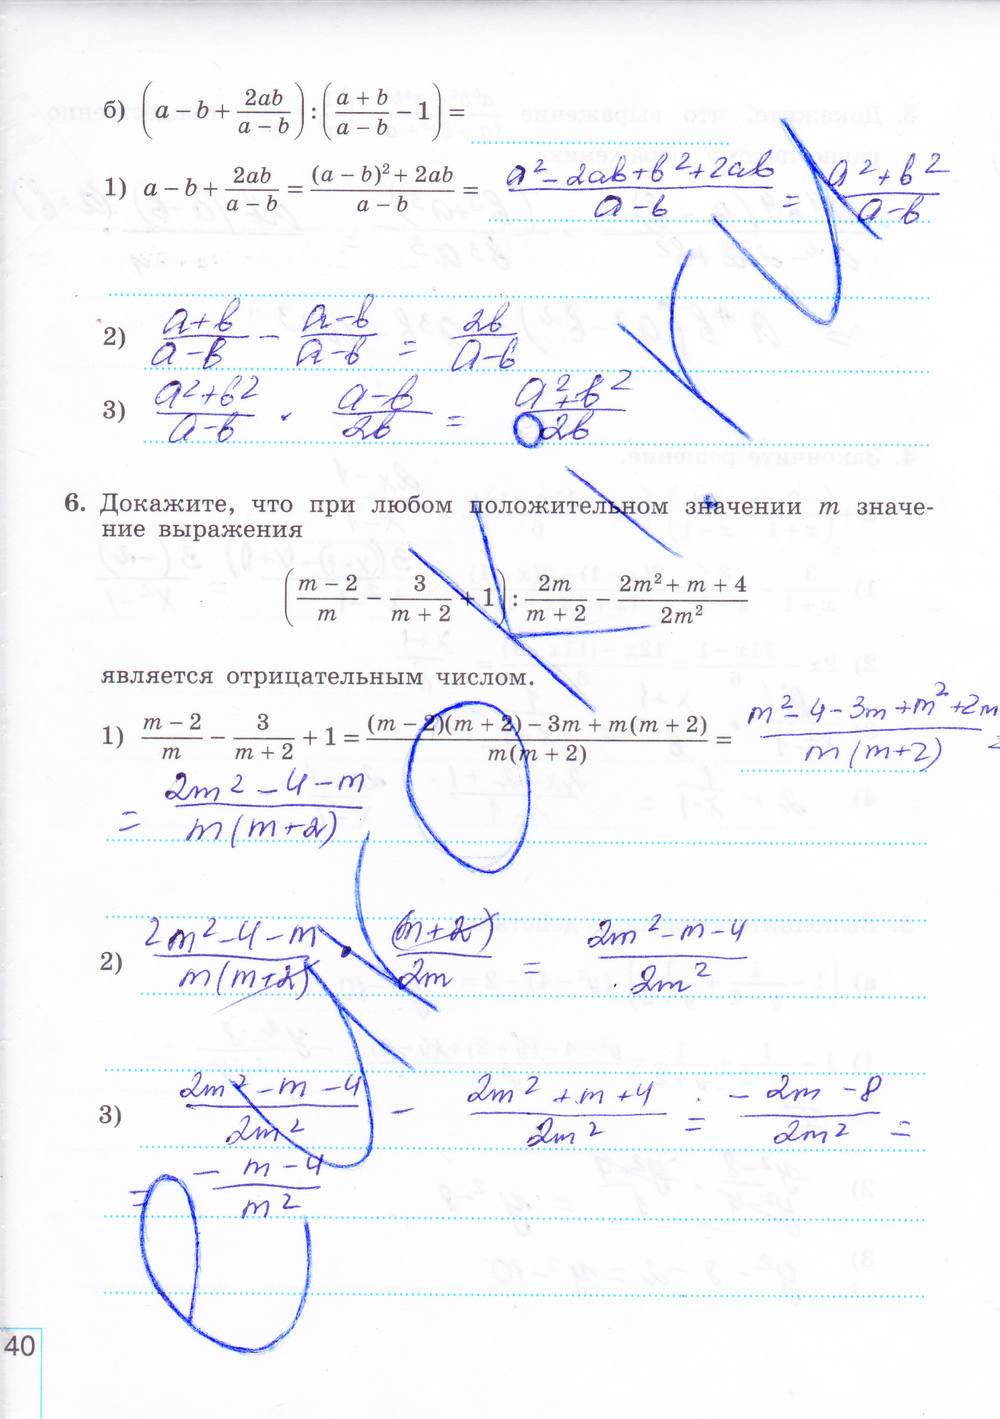 б) (a − b + 2ab/(a − b)) : ((a + b)/(a − b) − 1) =
1) a − b + 2ab/(a − b) = ((a − b)² + 2ab)/(a − b) = (a² − 2ab + b² + 2ab)/(a − b) = (a² + b²)/(a − b)
2) (a + b)/(a − b) − (a − b)/(a − b) = 2b/(a − b)
3) (a² + b²)/(a − b) · (a − b)/2b = (a² + b²)/2b
6. Докажите, что при любом положительном значении m значе-
ние выражения
((m − 2)/m − 3/(m + 2) + 1) : 2m/(m + 2) − (2m² + m + 4)/2m²
является отрицательным числом.
1) (m − 2)/m − 3/(m + 2) + 1 = ((m − 2)(m + 2) − 3m + m(m + 2))/(m(m + 2)) = (m² − 4 − 3m + m² + 2m)/(m(m + 2)) =
= (2m² − 4 − m)/(m(m + 2))
2) (2m² − 4 − m)/(m(m + 2)) · (m + 2)/2m = (2m² − m − 4)/2m²
3) (2m² − m − 4)/2m² − (2m² + m + 4)/2m² = − (2m − 8)/2m² =
= − (m − 4)/m²
40